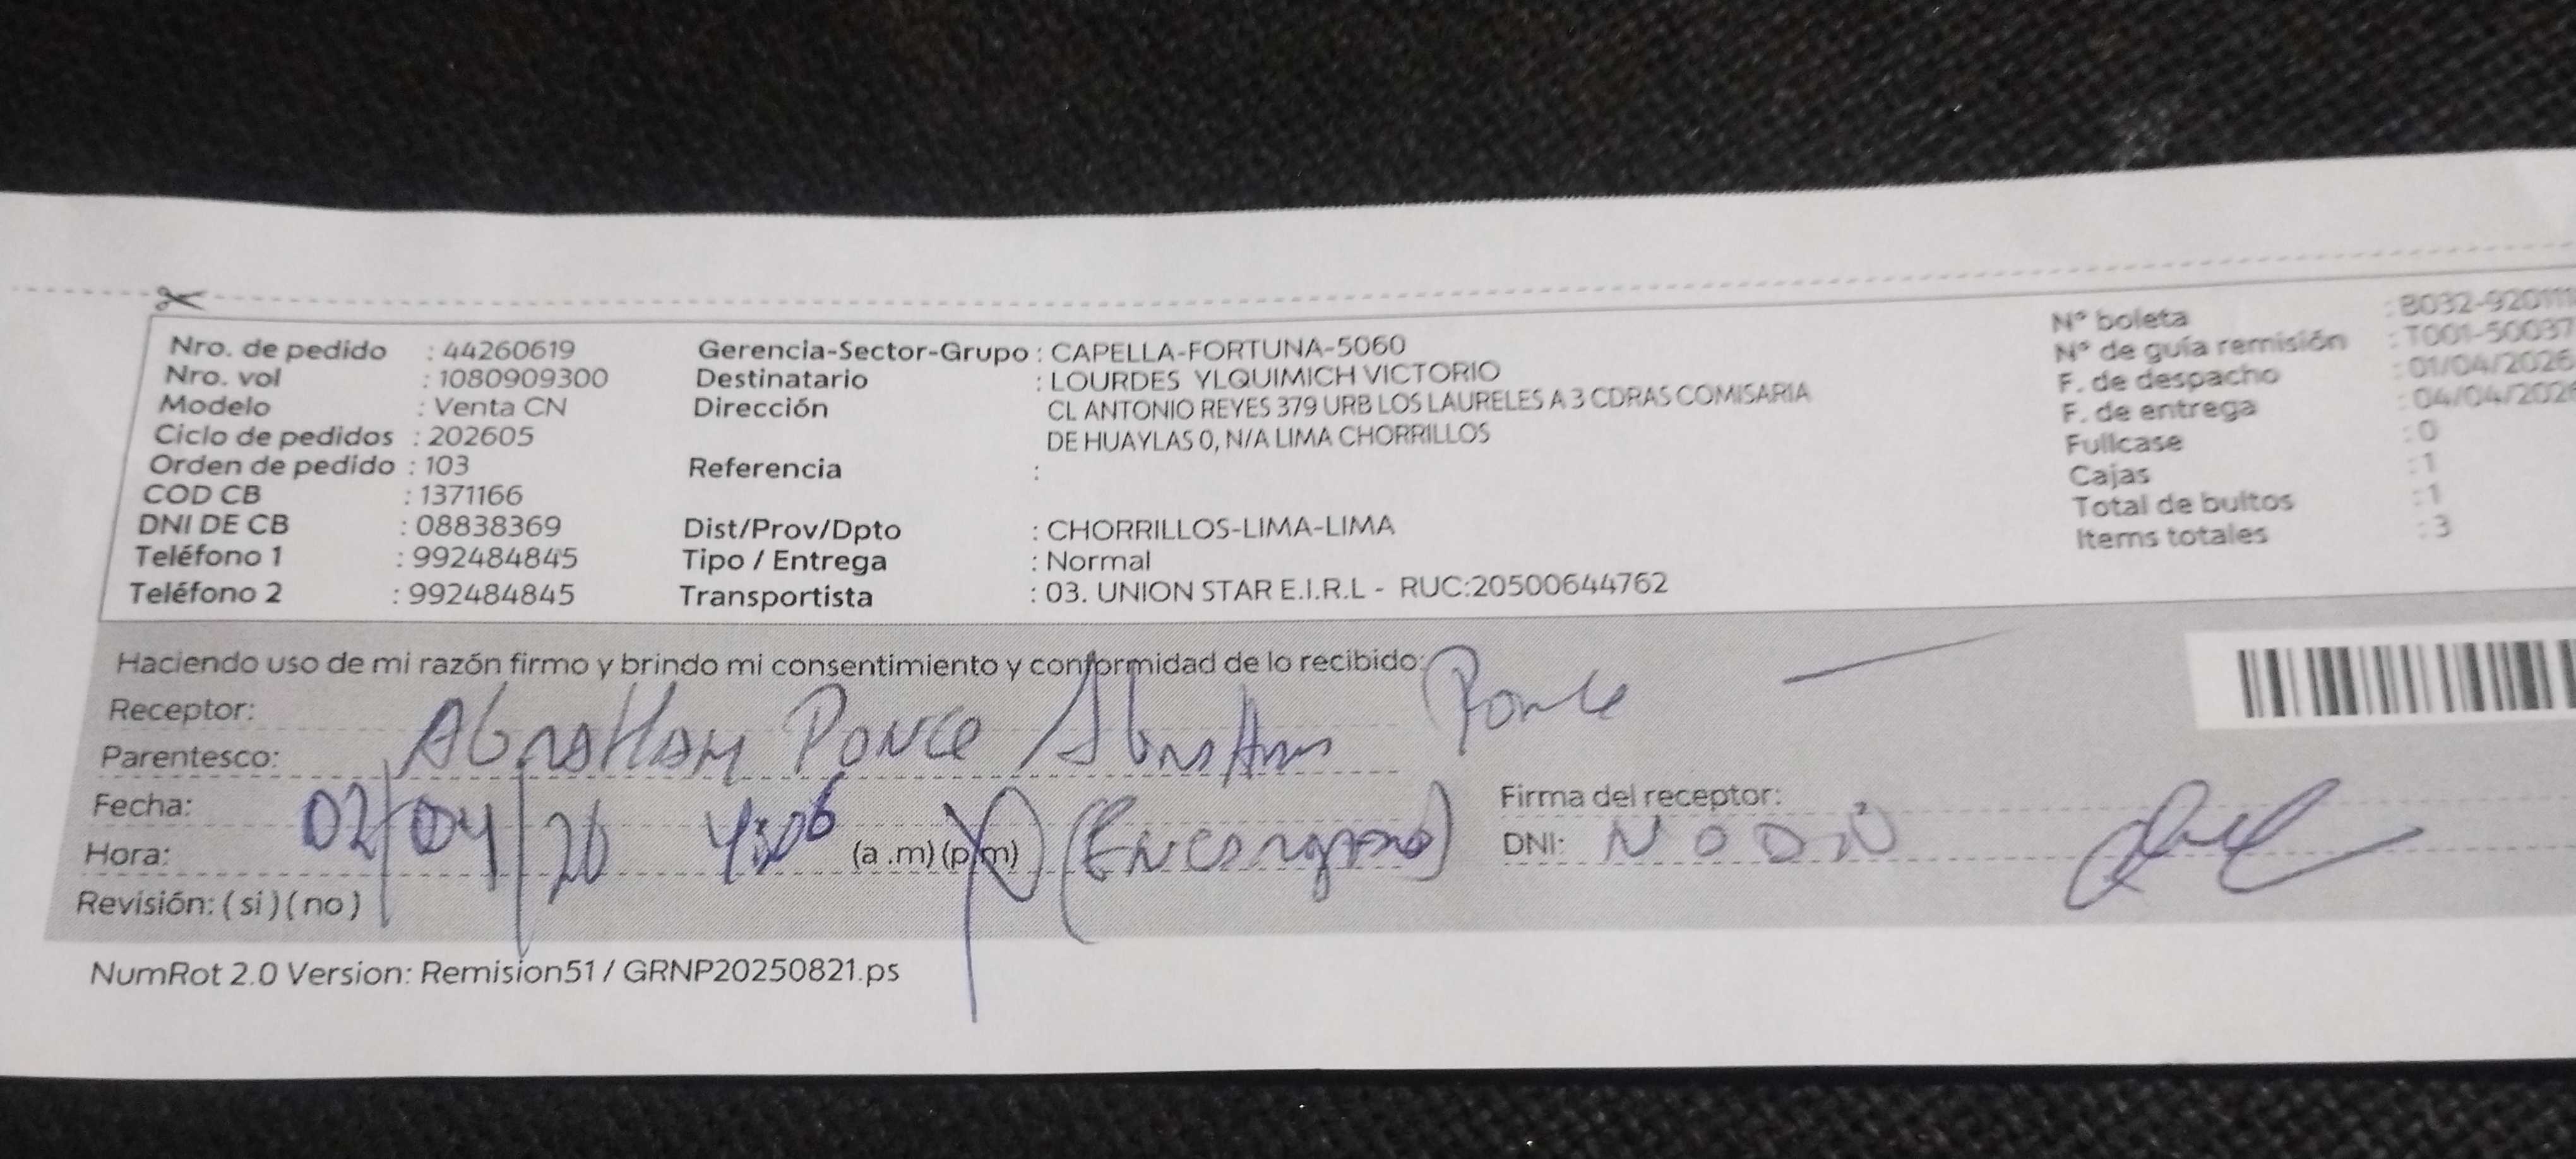 Nro. de pedido : 44260619
Nro. vol : 1080909300
Modelo : Venta CN
Ciclo de pedidos : 202605
Orden de pedido : 103
COD CB : 1371166
DNI DE CB : 08838369
Teléfono 1 : 992484845
Teléfono 2 : 992484845
Gerencia-Sector-Grupo : CAPELLA-FORTUNA-5060
Destinatario : LOURDES YLQUIMICH VICTORIO
Dirección : CL ANTONIO REYES 379 URB LOS LAURELES A 3 CDRAS COMISARIA
DE HUAYLAS 0, N/A LIMA CHORRILLOS
Referencia :
Dist/Prov/Dpto : CHORRILLOS-LIMA-LIMA
Tipo / Entrega : Normal
Transportista : 03. UNION STAR E.I.R.L - RUC:20500644762
N° boleta : B032-920111
N° de guía remisión : T001-50037
F. de despacho : 01/04/2026
F. de entrega : 04/04/2026
Fullcase : 0
Cajas : 1
Total de bultos : 1
Items totales : 3
Haciendo uso de mi razón firmo y brindo mi consentimiento y conformidad de lo recibido:
Receptor:
Abraham Ponce Abraham Ponce
Parentesco:
Fecha: 02/04/26
Hora: (a .m) (p.m) (Encargado)
Revisión: ( si ) ( no )
Firma del receptor:
DNI:
NumRot 2.0 Version: Remision51 / GRNP20250821.ps